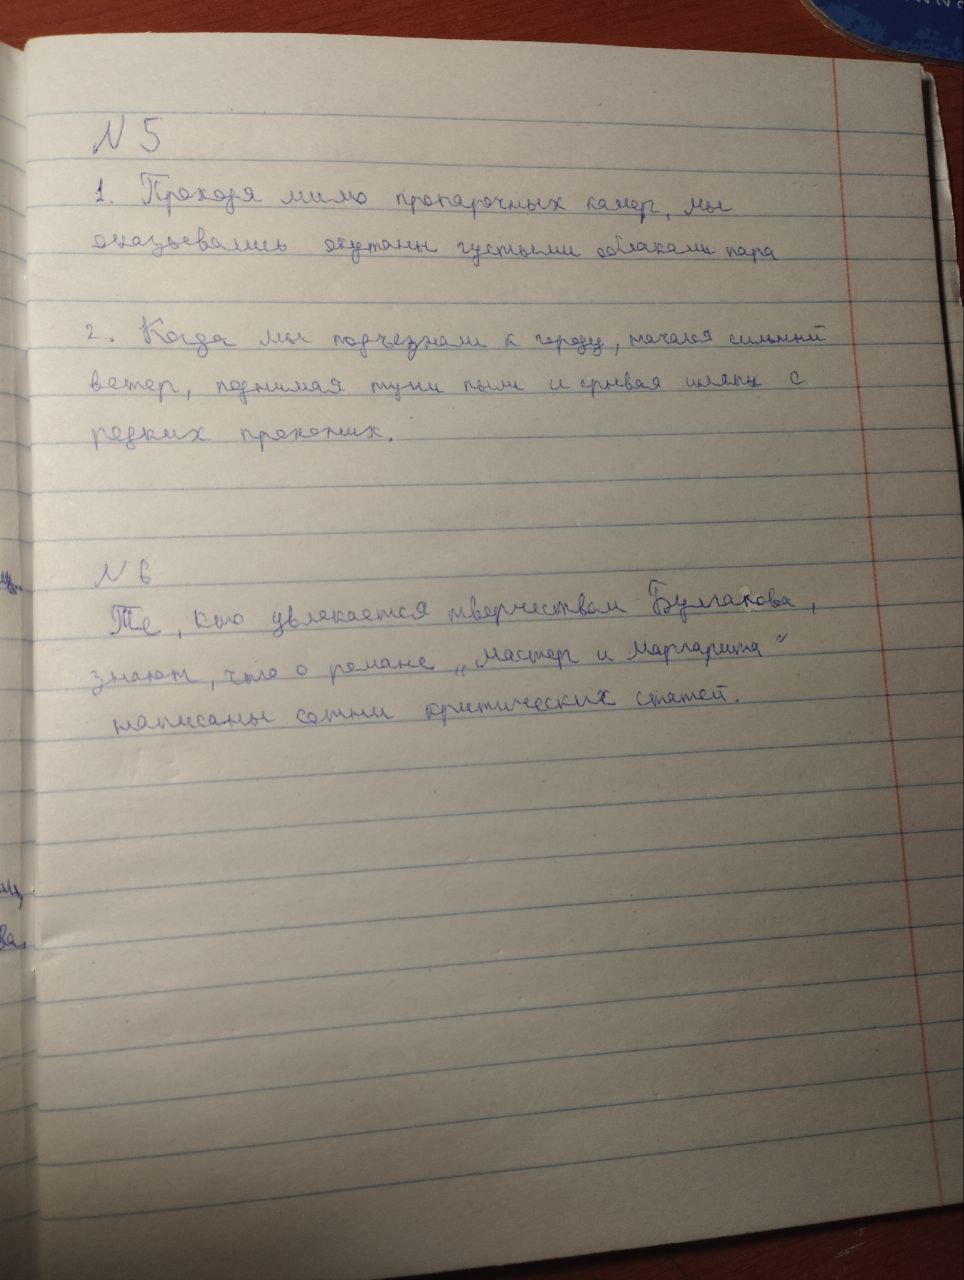 N 5
1. Проходя мимо пропарочных камер, мы
оказывались окутаны густыми облаками пара
2. Когда мы подъезжали к городу, начался сильный
ветер, поднимая тучи пыли и срывая шляпы с
редких прохожих.
N 6
Те, кто увлекается творчеством Булгакова,
знают, что о романе „Мастер и Маргарита"
написаны сотни критических статей.
ва.